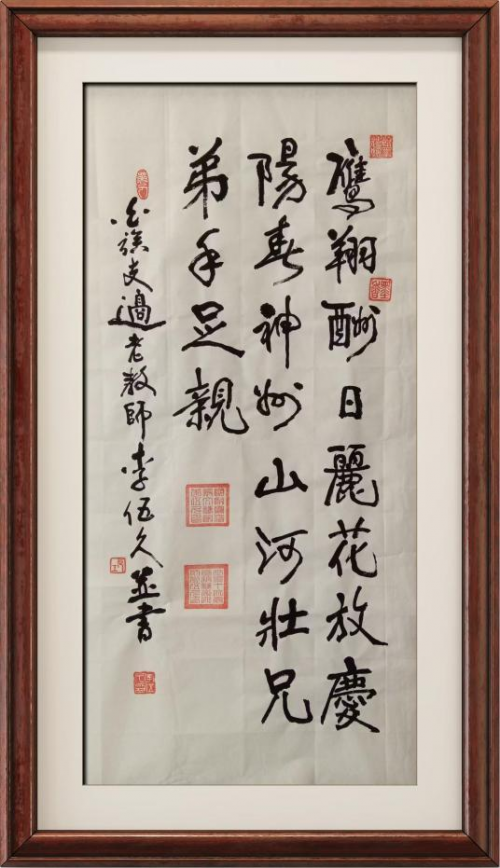 鷹翔酬日麗花放慶
陽春神州山河壯兄
弟手足親
族支邊老教師李伍久並書